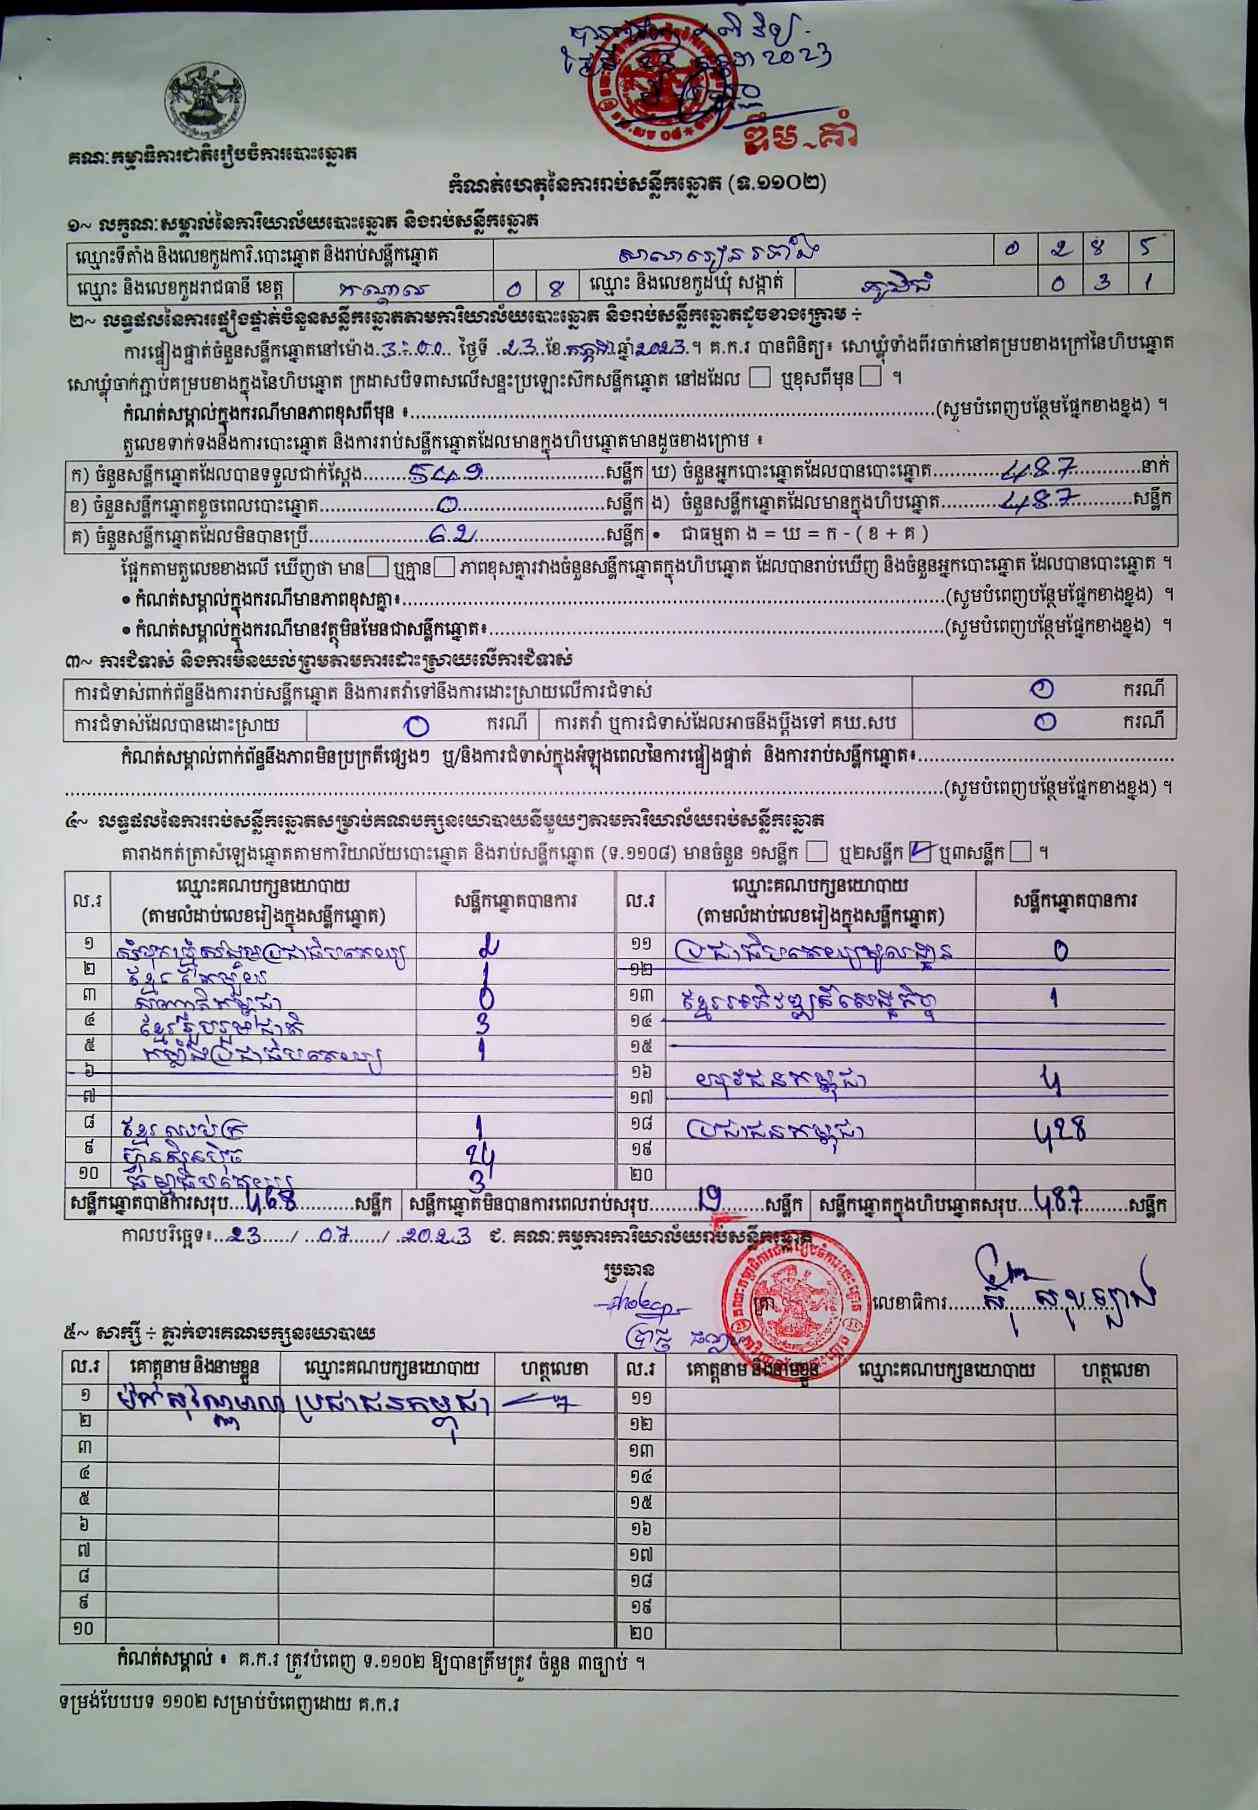 ២០២3
ឌឹម~គាំ
គណៈកម្មាធិការជាតិរៀបចំការបោះឆ្នោត
កំណត់ហេតុនៃការរាប់សន្លឹកឆ្នោត (ទ.១១០២)
១~ លក្ខណៈសម្គាល់នៃការិយាល័យបោះឆ្នោត និងរាប់សន្លឹកឆ្នោត
ឈ្មោះទីតាំង និងលេខកូដការិ.បោះឆ្នោត និងរាប់សន្លឹកឆ្នោត សាលារៀន 0 2 8 5
ឈ្មោះ និងលេខកូដរាជធានី ខេត្ត កណ្តាល 0 8 ឈ្មោះ និងលេខកូដឃុំ សង្កាត់ ភូមិធំ 0 3 1
២~ លទ្ធផលនៃការផ្ទៀងផ្ទាត់ចំនួនសន្លឹកឆ្នោតតាមការិយាល័យបោះឆ្នោត និងរាប់សន្លឹកឆ្នោតដូចខាងក្រោម ÷
ការផ្ទៀងផ្ទាត់ចំនួនសន្លឹកឆ្នោតនៅម៉ោង.3:00.. ថ្ងៃទី .23..ខែ.កក្កដា.ឆ្នាំ2023.។ គ.ក.រ បានពិនិត្យ៖ សោឃ្លុំទាំងពីរចាក់នៅគម្របខាងក្រៅនៃហិបឆ្នោត
សោឃ្លុំចាក់ភ្ជាប់គម្របខាងក្នុងនៃហិបឆ្នោត ក្រដាសបិទពាសលើសន្ទះប្រឡោះស៊កសន្លឹកឆ្នោត នៅដដែល ☐ ឬខុសពីមុន ☐ ។
កំណត់សម្គាល់ក្នុងករណីមានភាពខុសពីមុន ៖...(សូមបំពេញបន្ថែមផ្នែកខាងខ្នង) ។
តួលេខទាក់ទងនឹងការបោះឆ្នោត និងការរាប់សន្លឹកឆ្នោតដែលមានក្នុងហិបឆ្នោតមានដូចខាងក្រោម ៖
ក) ចំនួនសន្លឹកឆ្នោតដែលបានទទួលជាក់ស្តែង...549...សន្លឹក ឃ) ចំនួនអ្នកបោះឆ្នោតដែលបានបោះឆ្នោត...487...នាក់
ខ) ចំនួនសន្លឹកឆ្នោតខូចពេលបោះឆ្នោត...0...សន្លឹក ង) ចំនួនសន្លឹកឆ្នោតដែលមានក្នុងហិបឆ្នោត...487...សន្លឹក
គ) ចំនួនសន្លឹកឆ្នោតដែលមិនបានប្រើ...62...សន្លឹក • ជាធម្មតា ង = ឃ = ក - ( ខ + គ )
ផ្អែកតាមតួលេខខាងលើ ឃើញថា មាន ☐ ឬគ្មាន ☐ ភាពខុសគ្នារវាងចំនួនសន្លឹកឆ្នោតក្នុងហិបឆ្នោត ដែលបានរាប់ឃើញ និងចំនួនអ្នកបោះឆ្នោត ដែលបានបោះឆ្នោត ។
• កំណត់សម្គាល់ក្នុងករណីមានភាពខុសគ្នា៖...(សូមបំពេញបន្ថែមផ្នែកខាងខ្នង) ។
• កំណត់សម្គាល់ក្នុងករណីមានវត្ថុមិនមែនជាសន្លឹកឆ្នោត៖...(សូមបំពេញបន្ថែមផ្នែកខាងខ្នង) ។
៣~ ការជំទាស់ និងការមិនយល់ព្រមតាមការដោះស្រាយលើការជំទាស់
ការជំទាស់ពាក់ព័ន្ធនឹងការរាប់សន្លឹកឆ្នោត និងការតវ៉ាទៅនឹងការដោះស្រាយលើការជំទាស់ 0 ករណី
ការជំទាស់ដែលបានដោះស្រាយ 0 ករណី ការតវ៉ា ឬការជំទាស់ដែលអាចនឹងប្តឹងទៅ គឃ.សប 0 ករណី
កំណត់សម្គាល់ពាក់ព័ន្ធនឹងភាពមិនប្រក្រតីផ្សេងៗ ឬ/និងការជំទាស់ក្នុងអំឡុងពេលនៃការផ្ទៀងផ្ទាត់ និងការរាប់សន្លឹកឆ្នោត៖...
...(សូមបំពេញបន្ថែមផ្នែកខាងខ្នង) ។
៤~ លទ្ធផលនៃការរាប់សន្លឹកឆ្នោតសម្រាប់គណបក្សនយោបាយនីមួយៗតាមការិយាល័យរាប់សន្លឹកឆ្នោត
តារាងកត់ត្រាសំឡេងឆ្នោតតាមការិយាល័យបោះឆ្នោត និងរាប់សន្លឹកឆ្នោត (ទ.១១០៨) មានចំនួន ១សន្លឹក ☐ ឬ២សន្លឹក ☑ ឬ៣សន្លឹក ☐ ។
ល.រ ឈ្មោះគណបក្សនយោបាយ (តាមលំដាប់លេខរៀងក្នុងសន្លឹកឆ្នោត) សន្លឹកឆ្នោតបានការ ល.រ ឈ្មោះគណបក្សនយោបាយ (តាមលំដាប់លេខរៀងក្នុងសន្លឹកឆ្នោត) សន្លឹកឆ្នោតបានការ
១ សំបុកឃ្មុំសង្គមប្រជាធិបតេយ្យ 2 ១១ ប្រជាធិបតេយ្យមូលដ្ឋាន 0
២ ខ្មែរតែមួយ 1 ១២
៣ សញ្ជាតិកម្ពុជា 0 ១៣ ខ្មែរអភិវឌ្ឍន៍សេដ្ឋកិច្ច 1
៤ ខ្មែររួបរួមជាតិ 3 ១៤
៥ កម្លាំងប្រជាធិបតេយ្យ 1 ១៥
៦ ១៦ យុវជនកម្ពុជា 4
៧ ១៧
៨ ខ្មែរឈប់ក្រ 1 ១៨ ប្រជាជនកម្ពុជា 428
៩ ហ៊្វុនស៊ិនប៉ិច 24 ១៩
១០ ធម្មាធិបតេយ្យ 3 ២០
សន្លឹកឆ្នោតបានការសរុប...468...សន្លឹក សន្លឹកឆ្នោតមិនបានការពេលរាប់សរុប...19...សន្លឹក សន្លឹកឆ្នោតក្នុងហិបឆ្នោតសរុប...487...សន្លឹក
កាលបរិច្ឆេទ៖..23..../..07..../.2023 ជ. គណៈកម្មការការិយាល័យរាប់សន្លឹកឆ្នោត
ប្រធាន
ត្រា លេខាធិការ...
៥~ សាក្សី ÷ ភ្នាក់ងារគណបក្សនយោបាយ
ល.រ គោត្តនាម និងនាមខ្លួន ឈ្មោះគណបក្សនយោបាយ ហត្ថលេខា ល.រ គោត្តនាម និងនាមខ្លួន ឈ្មោះគណបក្សនយោបាយ ហត្ថលេខា
១ ប្រជាជនកម្ពុជា ១១
២ ១២
៣ ១៣
៤ ១៤
៥ ១៥
៦ ១៦
៧ ១៧
៨ ១៨
៩ ១៩
១០ ២០
កំណត់សម្គាល់ ៖ គ.ក.រ ត្រូវបំពេញ ទ.១១០២ ឱ្យបានត្រឹមត្រូវ ចំនួន ៣ច្បាប់ ។
ទម្រង់បែបបទ ១១០២ សម្រាប់បំពេញដោយ គ.ក.រ